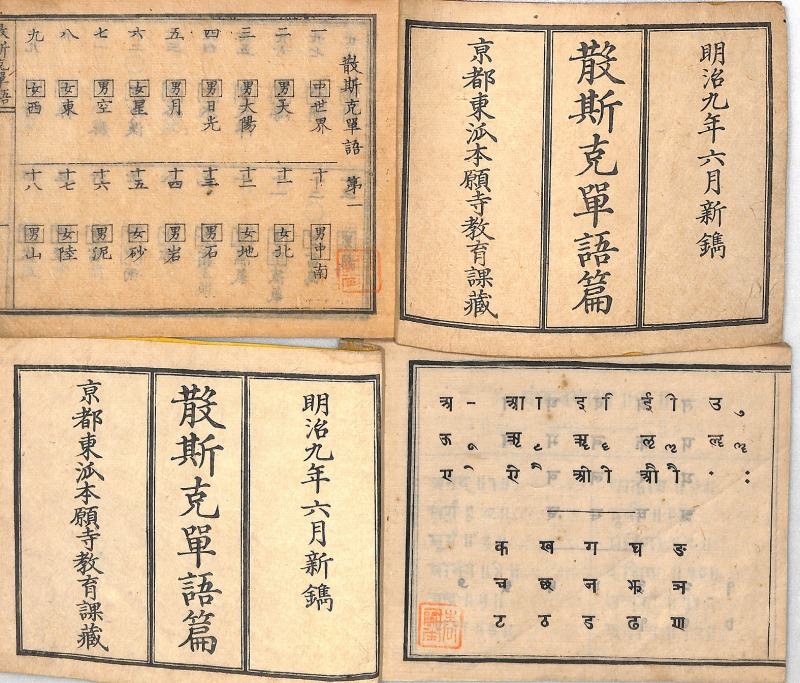 散斯克單語 第一
一 中 世界
二 男 天
三 男 大陽
四 男 日光
五 男 月
六 女 星
七 男 空
八 女 東
九 女 西
十 男中 南
十一 女 北
十二 女 地
十三 男 石
十四 男 岩
十五 女 砂
十六 男 泥
十七 女 陸
十八 男 山
明治九年六月新鐫
散斯克單語篇
亰都東泒本願寺教育課藏
明治九年六月新鐫
散斯克單語篇
亰都東泒本願寺教育課藏
अ - आ ा इ ि ई ी उ ु
ऊ ू ऋ ृ ॠ ॄ ऌ ॢ ॡ ॣ
ए े ऐ ै ओ ो औ ौ ं ः
क ख ग घ ङ
च छ ज झ ञ
ट ठ ड ढ ण